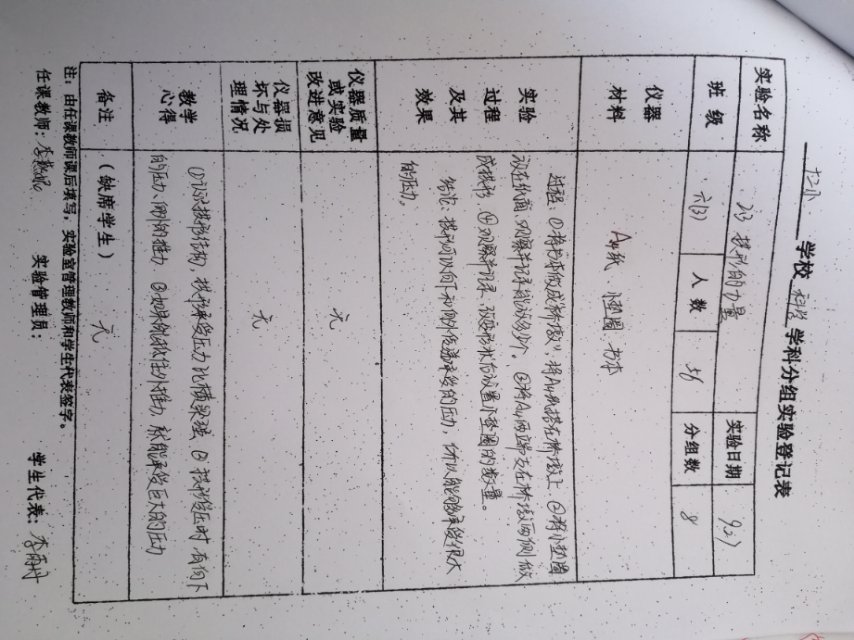 十二小 学校 科学 学科分组实验登记表
实验名称 2.3 拱形的力量 实验日期 9.27
班级 六(3) 人数 56 分组数 8
仪器材料 A4纸 小垫圈 书本
实验过程及其效果
过程:①将书本做成"桥墩",将A4纸搭在桥墩上 ②将小垫圈
放在纸面,观察并记录能放多少个。③将A4两端支在桥墩两侧做
成拱形 ④观察并记录 放置小垫圈的数量。
结论:拱形可以向下和向外传递承受的压力,所以能够承受很大
的压力。
仪器质量或实验改进意见 无
仪器损坏与处理情况 无
教学心得
①认识拱形结构,拱形承受压力比横梁强 ②拱形受压时有向下
的压力、向外的推力 ③如果能抵住外推力,就能承受巨大的压力
备注 (缺席学生) 无
注:由任课教师课后填写,实验室管理教师和学生代表签字。
任课教师: 实验管理员: 学生代表:李雨丹